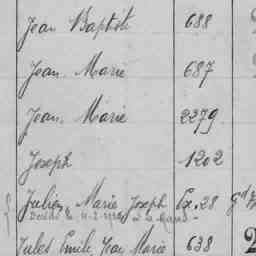 Jean Baptiste 688
Jean Marie 687
Jean Marie 2279
Joseph 1202
Julien Marie Joseph Ex. 28
Décédé le
Jules Emile Jean Marie 638